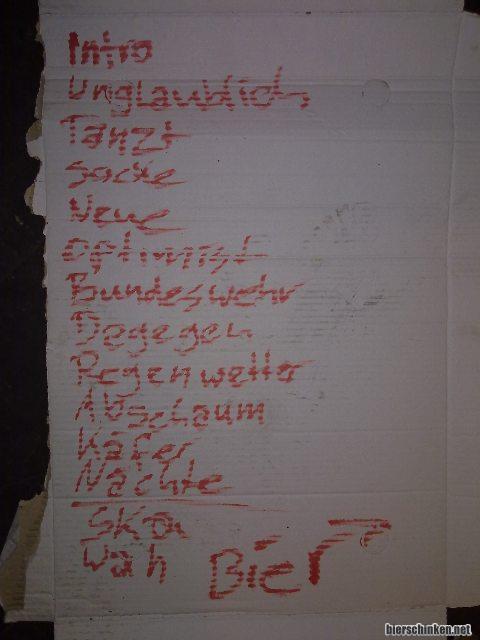 Intro
Unglaublich
Tanzt
Socke
Neue
optimist
Bundeswehr
Degegen
Regenwetter
Abschaum
Käfer
Nächte
Ska
Wah
Bier
bierschinken.net